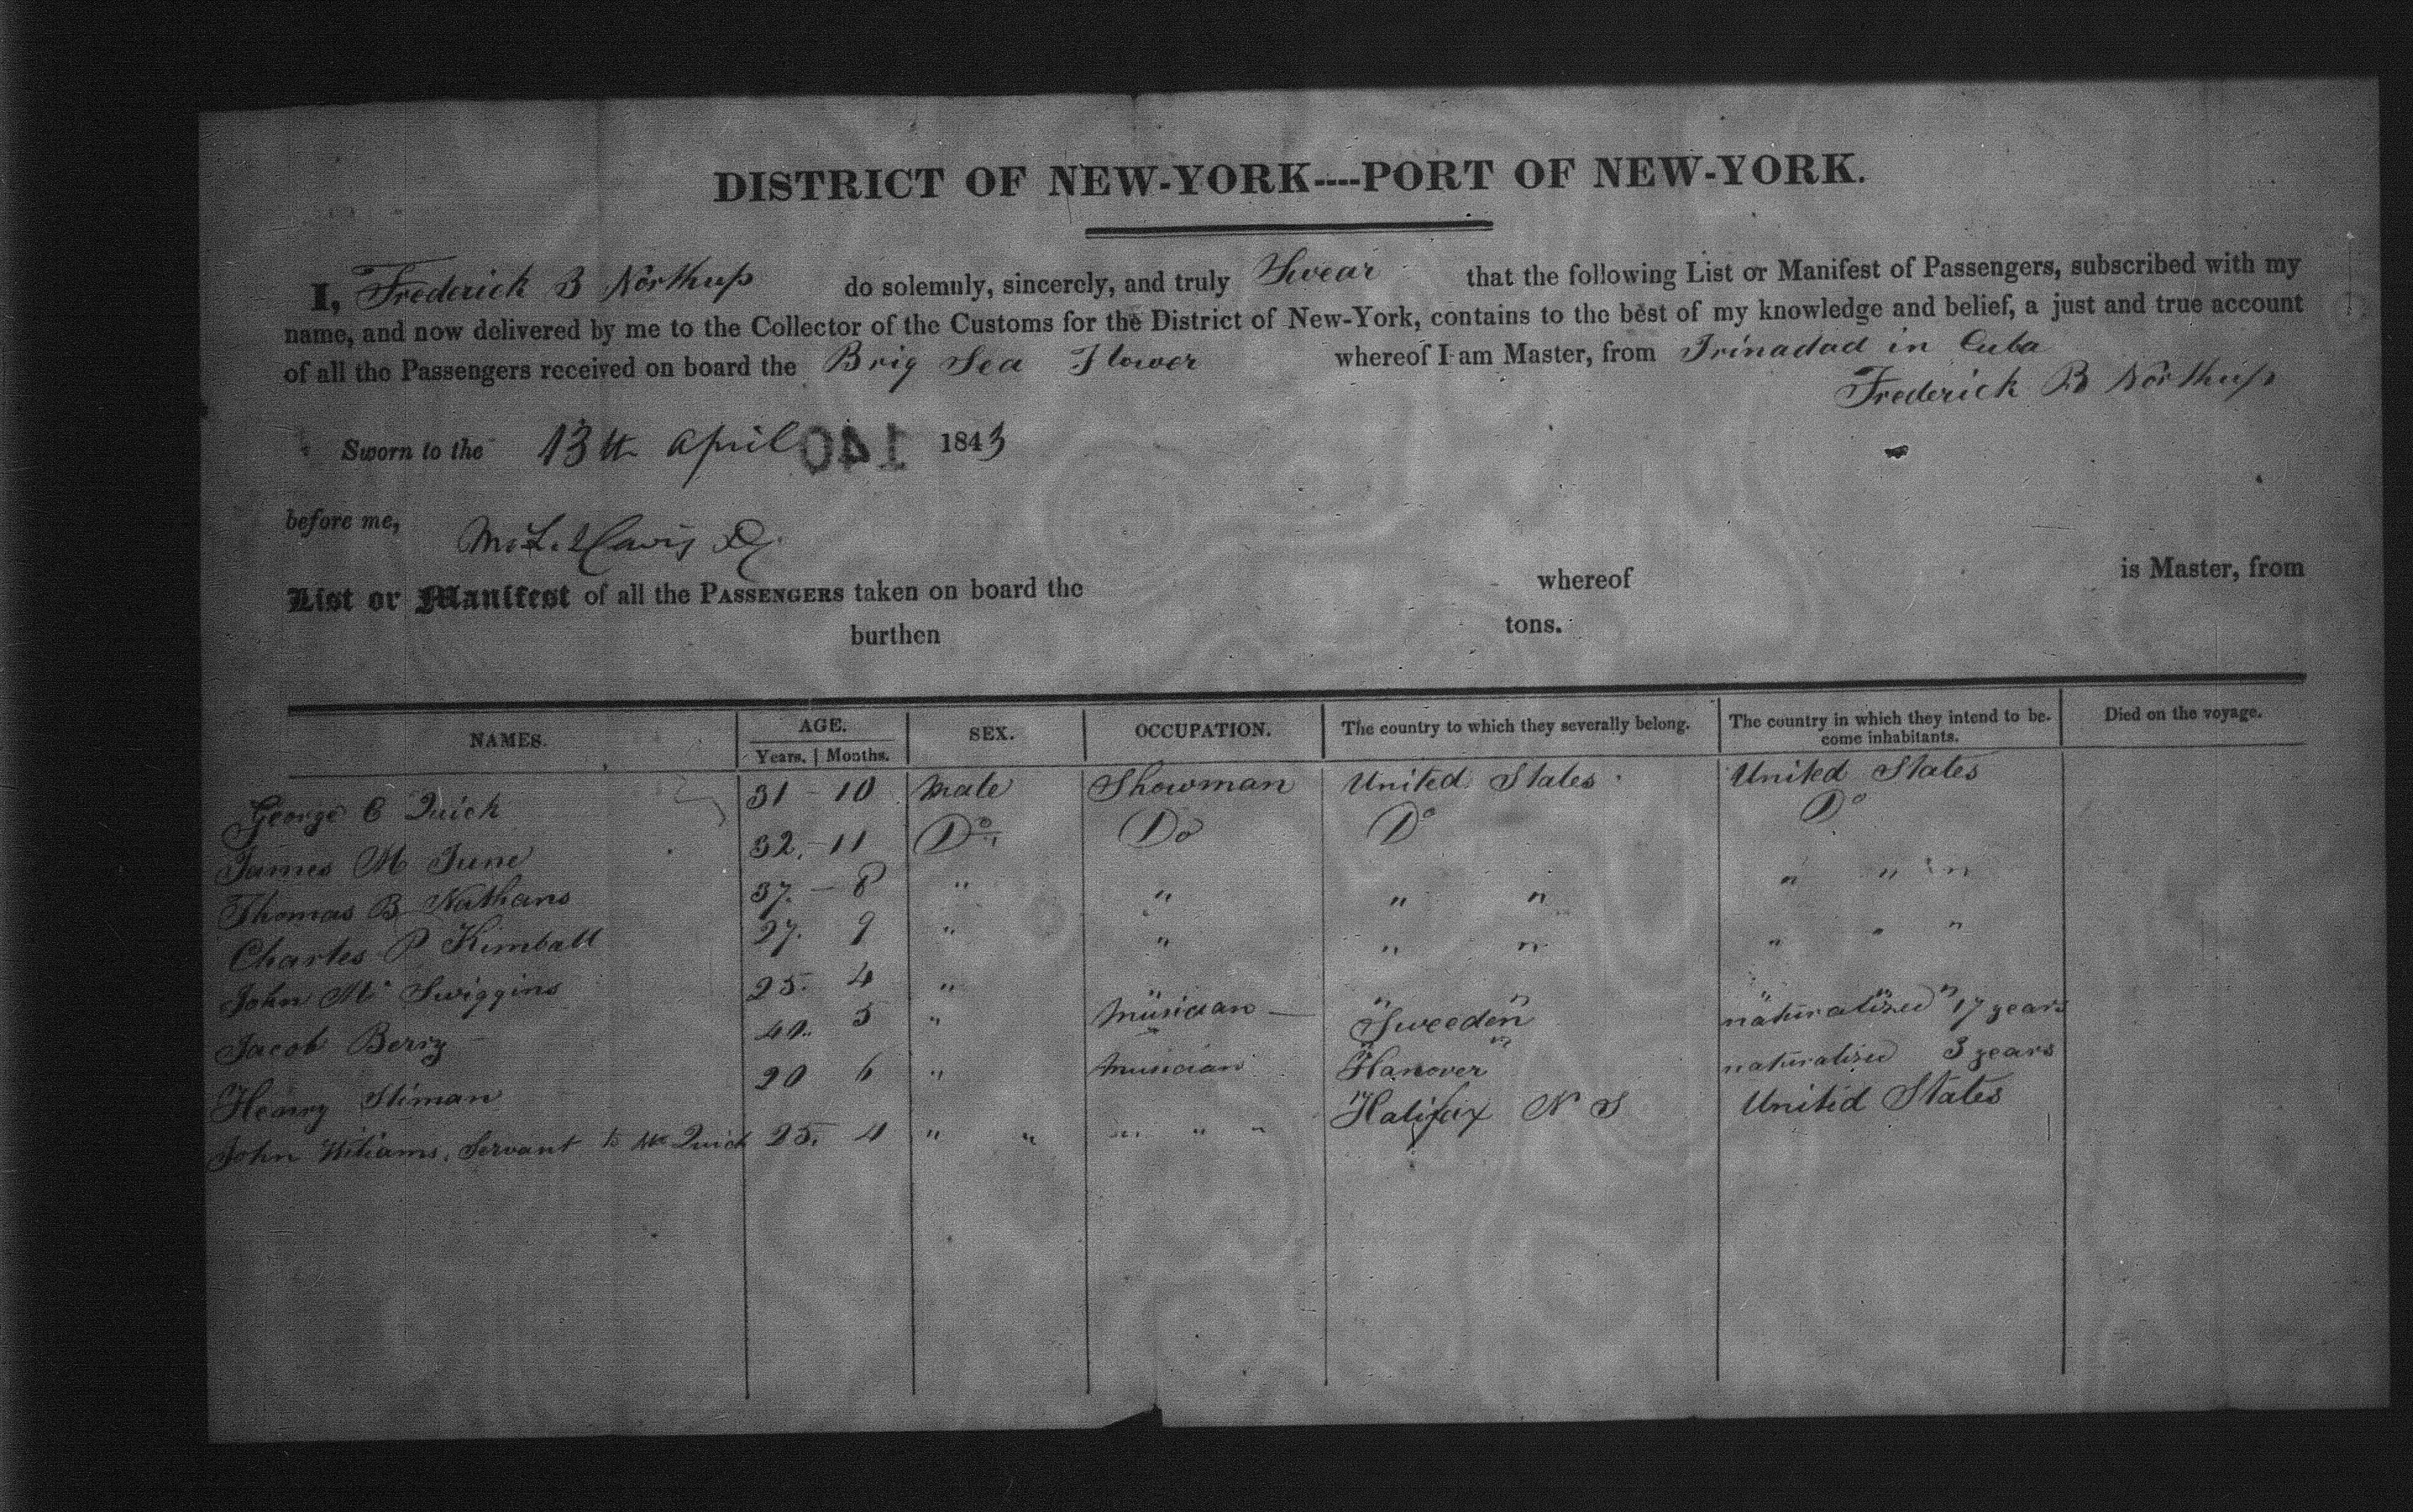 DISTRICT OF NEW-YORK----PORT OF NEW-YORK.
I, Frederick B Northup do solemnly, sincerely, and truly Swear that the following List or Manifest of Passengers, subscribed with my
name, and now delivered by me to the Collector of the Customs for the District of New-York, contains to the best of my knowledge and belief, a just and true account
of all the Passengers received on board the Brig Sea Flower whereof I am Master, from Trinadad in Cuba
Frederick B Northup
Sworn to the 13th April 140 1843
before me,
List or Manifest of all the PASSENGERS taken on board the whereof is Master, from
burthen tons.
NAMES. AGE. SEX. OCCUPATION. The country to which they severally belong. The country in which they intend to be- Died on the voyage.
Years. Months. come inhabitants.
George C Quick 31 - 10 Male Showman United States United States
James M June 32. - 11 Do Do Do Do
Thomas B Nathans 37. - 8 " " " " " " "
Charles P Kimball 27. 9 " " " " " " "
John M Swiggins 25. 4 " " " " " " "
Jacob Berry 40. 5 " Musician Sweeden naturalized 17 years
Henry Stiman 20 6 " Musician Hanover naturalized 3 years
John Wiliams, Servant to Mr Quick 25. 4 " " " " " Halifax N S United States